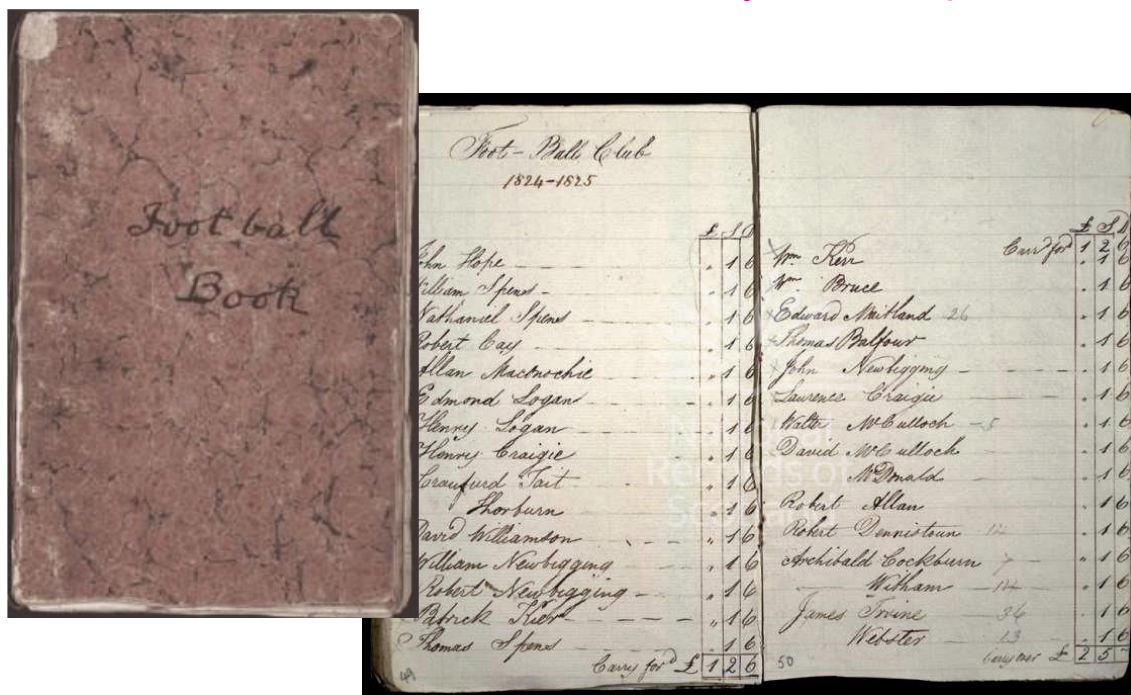 Football
Book
Foot-Ball Club
1824-1825
£ S D
John Hope . 1 6
William Spens . 1 6
Nathaniel Spens . 1 6
Robert Cay . 1 6
Allan Maconochie . 1 6
Edmond Logan . 1 6
Henry Logan . 1 6
Henry Craigie . 1 6
Craufurd Tait . 1 6
Thorburn . 1 6
David Williamson . 1 6
William Newbigging . 1 6
Robert Newbigging . 1 6
Patrick Kier . 1 6
Thomas Spens . 1 6
Carry for'd £ 1 2 6
49
£ S D
Carr'd for'd 1 2 6
Wm Kerr . 1 6
Wm Bruce . 1 6
Edward Maitland 26 . 1 6
Thomas Balfour . 1 6
John Newbigging . 1 6
Laurence Craigie . 1 6
Walter McCulloch 5 . 1 6
David McCulloch . 1 6
McDonald . 1 6
Robert Allan . 1 6
Robert Dennistoun 12 . 1 6
Archibald Cockburn 7 . 1 6
Witham 14 . 1 6
James Irvine 36 . 1 6
Webster 13 . 1 6
Carry over £ 2 5 -
50
National
Records of
Scotland